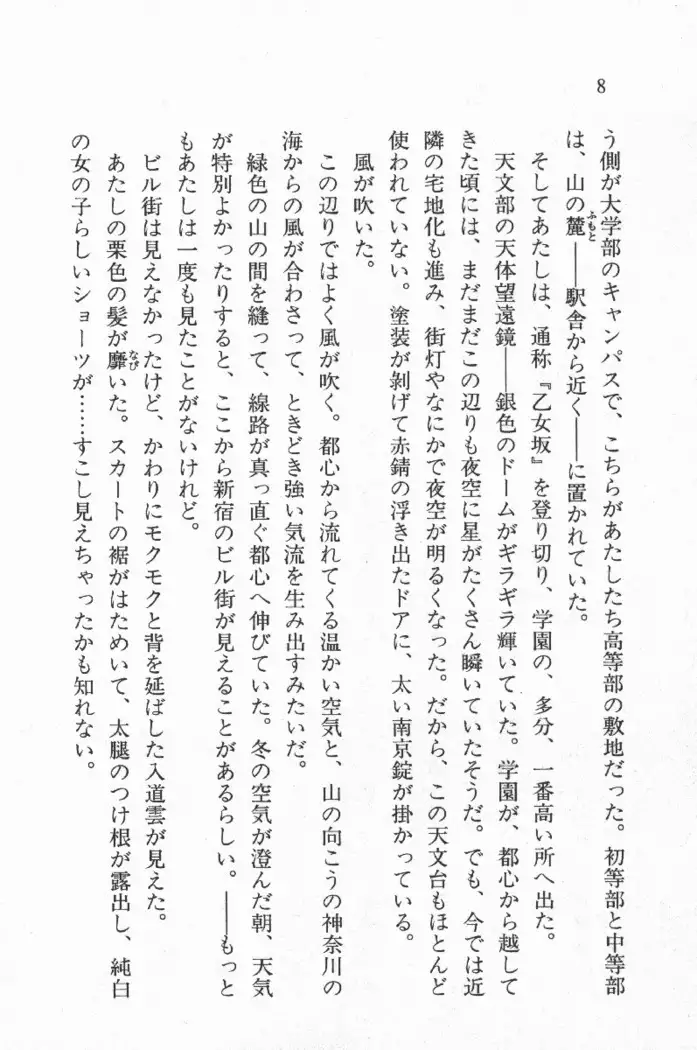 8
う側が大学部のキャンパスで、こちらがあたしたち高等部の敷地だった。初等部と中等部
は、山の麓――駅舎から近く――に置かれていた。
ふもと
そしてあたしは、通称『乙女坂』を登り切り、学園の、多分、一番高い所へ出た。
天文部の天体望遠鏡――銀色のドームがギラギラ輝いていた。学園が、都心から越して
きた頃には、まだまだこの辺りも夜空に星がたくさん瞬いていたそうだ。でも、今では近
隣の宅地化も進み、街灯やなにかで夜空が明るくなった。だから、この天文台もほとんど
使われていない。塗装が剝げて赤錆の浮き出たドアに、太い南京錠が掛かっている。
風が吹いた。
この辺りではよく風が吹く。都心から流れてくる温かい空気と、山の向こうの神奈川の
海からの風が合わさって、ときどき強い気流を生み出すみたいだ。
緑色の山の間を縫って、線路が真っ直ぐ都心へ伸びていた。冬の空気が澄んだ朝、天気
が特別よかったりすると、ここから新宿のビル街が見えることがあるらしい。――もっと
もあたしは一度も見たことがないけれど。
ビル街は見えなかったけど、かわりにモクモクと背を延ばした入道雲が見えた。
あたしの栗色の髪が靡いた。スカートの裾がはためいて、太腿のつけ根が露出し、純白
なび
の女の子らしいショーツが……すこし見えちゃったかも知れない。